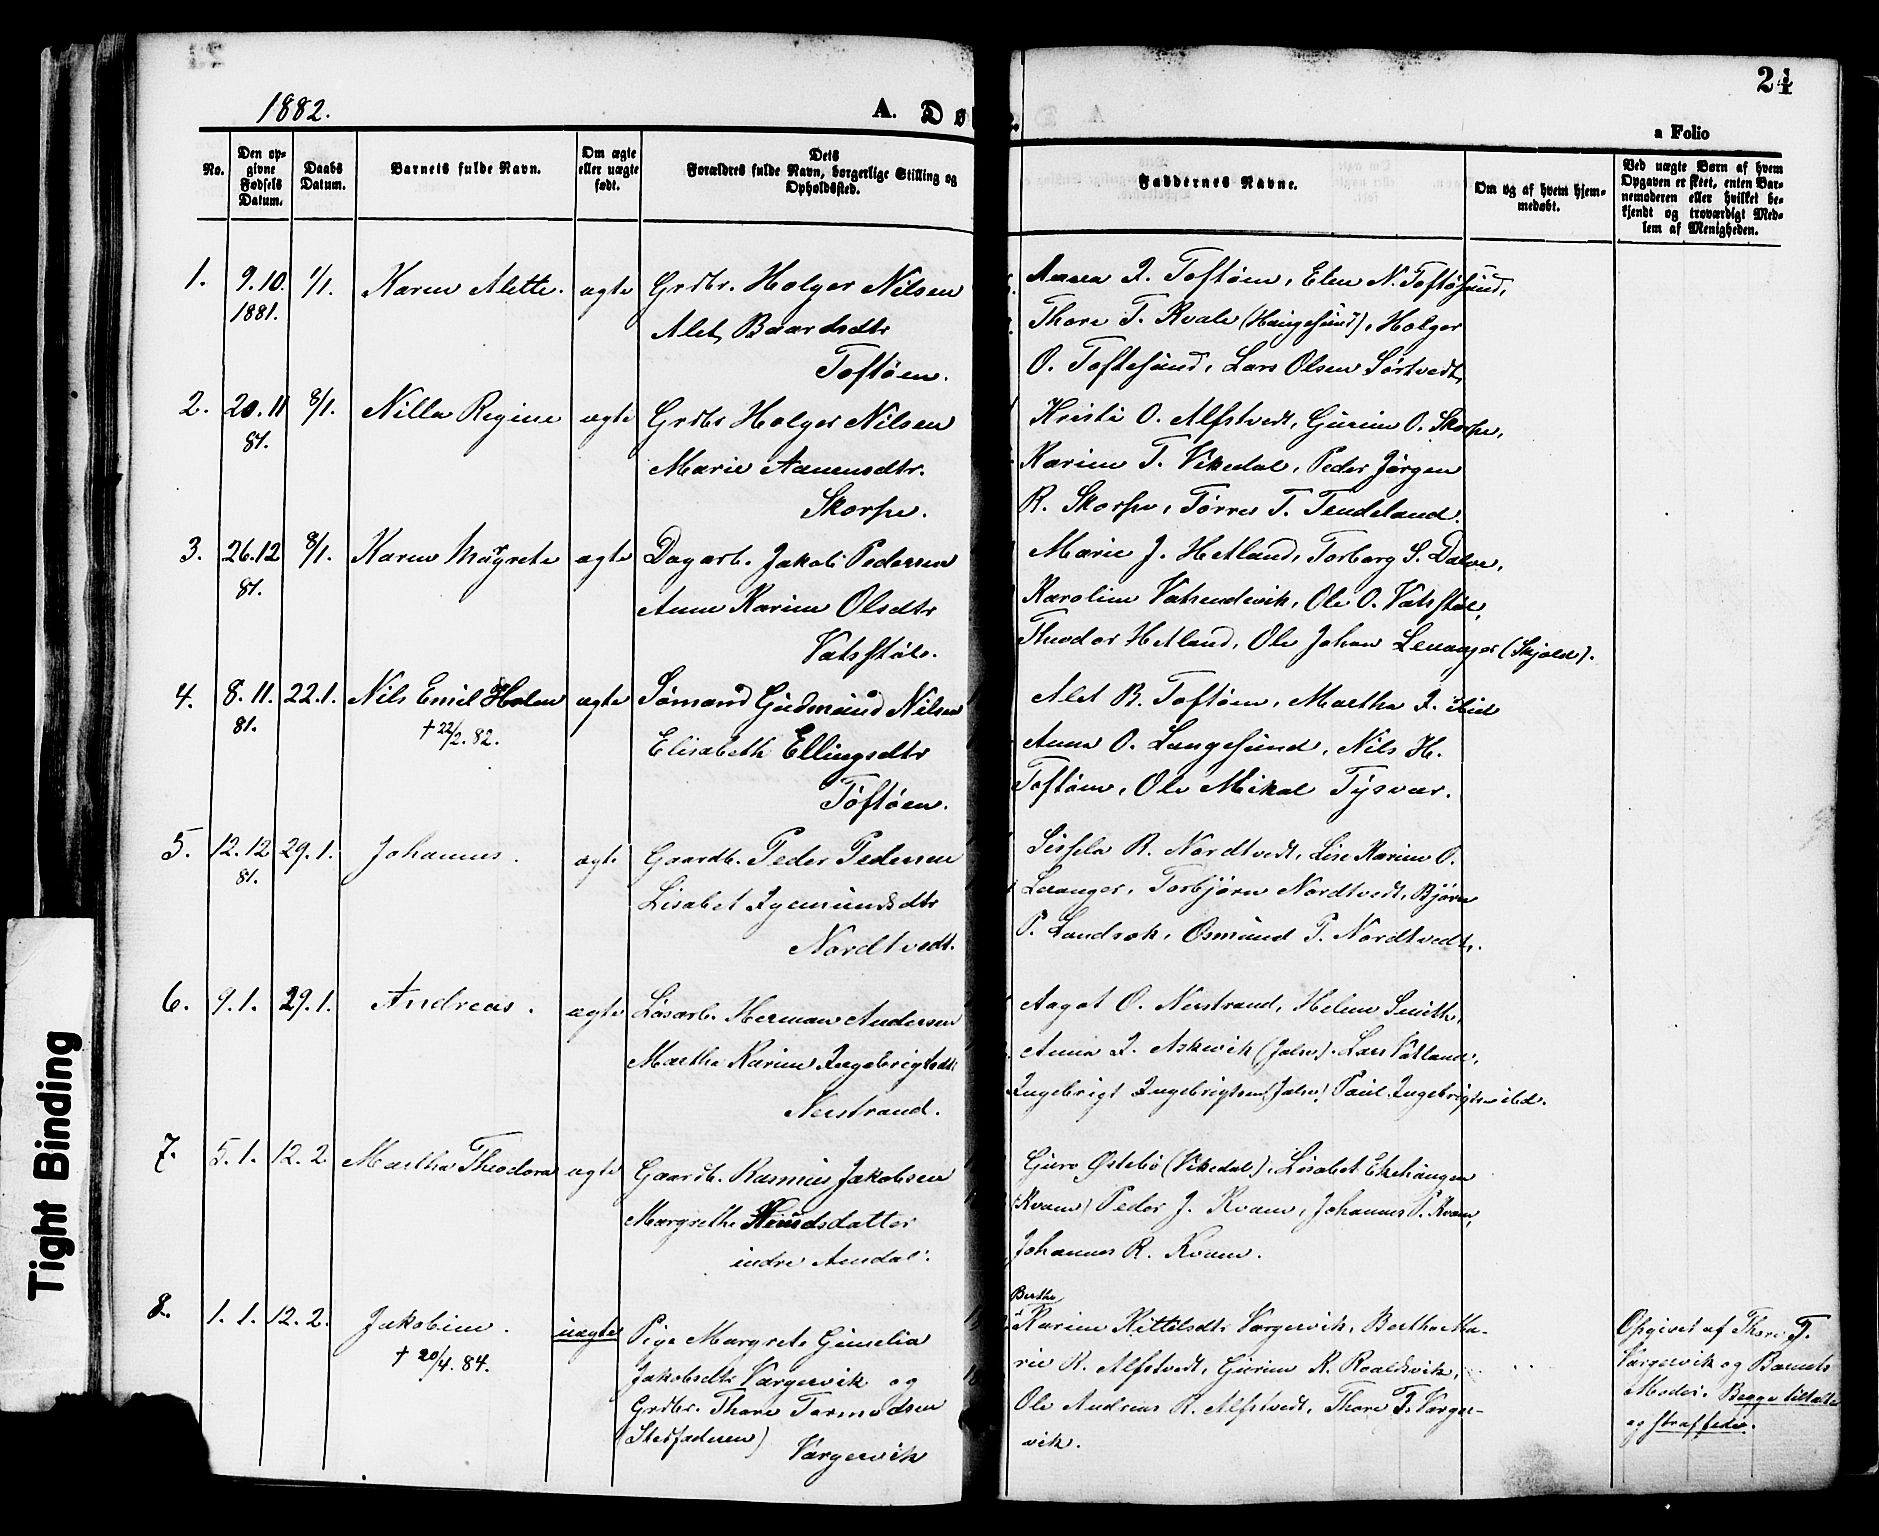 24
1882.
A. Dø
a Folio
No.
Den op-
givne
Fødsels
Datum.
Daabs
Datum.
Barnets fulde Navn.
Om ægte
eller uægte
født.
Dets
Forældres fulde Navn, borgerlige Stilling og
Opholdssted.
Faddernes Navne.
Om og af hvem hjem-
medøbt.
Ved uægte Børn af hvem
Opgaven er skeet, enten Bar-
nemoderen eller hvilket be-
kjendt og troværdigt Med-
lem af Menigheden.
1. 9.10. 1/1. Karen Alette. ægte Grdbr. Holger Nilsen
1881. Alet Baardsdtr
Toftøen.
Anna I. Toftøen, Elen N. Toftøsund,
Thore T. Kvale (Haugesund), Holger
O. Toftesund, Lars Olsen Sørtvedt,
2. 20.11 8/1. Nilla Regine ægte Grdbr Holger Nilsen
81. Marie Aanensdtr.
Skorpe.
Kristi O. Alfstvedt, Gurine O. Skorpe,
Karine T. Vikedal, Peder Jørgen
R. Skorpe, Tørres T. Tendeland.
3. 26.12 8/1. Karen Margrete ægte Dagarb. Jakob Pedersen
81. Anne Karine Olsdtr
Vatsstøl.
Marie J. Hetland, Torborg S. Dalve,
Karoline Vatsendvik, Ole O. Vatsstøl,
Theodor Hetland, Ole Johan Leranger (Skjold).
4. 8.11. 22.1. Nils Emil Holen ægte Sømand Gudmund Nilsen
81. † 22/2. 82. Elisabeth Ellingsdtr
Toftøen.
Alet B. Toftøen, Martha I. ibid
Anna O. Langesund, Nils H.
Toftøen, Ole Mikal Tysvær.
5. 12.12 29.1. Johannes. ægte Gaardb. Peder Pedersen
81. Lisabet Igemundsdtr
Nordtvedt.
Sissela R. Nordtvedt, Lise Karine O.
Leranger, Torbjørn Nordtvedt, Bjørn
P. Landsok, Osmund P. Nordtvedt.
6. 9.1. 29.1. Andreas. ægte Løsarb. Herman Andersen
Martha Karine Ingebrigtsdtr
Nerstrand.
Aagot O. Nerstrand, Helene Smith,
Anna I. Askevik (Jelsø). Lars Vatland,
Ingebrigt Ingebrigtsen (Jelsø) Paul Ingebrigtsen ibd.
7. 5.1. 12.2. Martha Theodora ægte Gaardb. Rasmus Jakobsen
Margrethe Knudsdatter
indre Amdal.
Guro Østebø (Vikedal), Lisabet Ekehaugen
(Kvam) Peder J. Kvam, Johannes P. Kvam,
Johannes R. Kvam.
8. 1.1. 12.2. Jakobine. uægte Pige Margrete Gunelia
† 20/4. 84. Jakobsdtr Vargervik og
Grdbr. Thore Tormodsen
(Stedfaderen) Vargervik
Berthe
Karine Kittelsdtr Vargervik, Berthe Ma-
rie K. Alfstvedt, Gurine K. Roaldsvik,
Ole Andreas R. Alfstvedt, Thore T. Varger-
vik.
Opgivet af Thore T.
Vargervik og Barnets
Moder. Begge tiltalte
og straffede.
Tight Binding